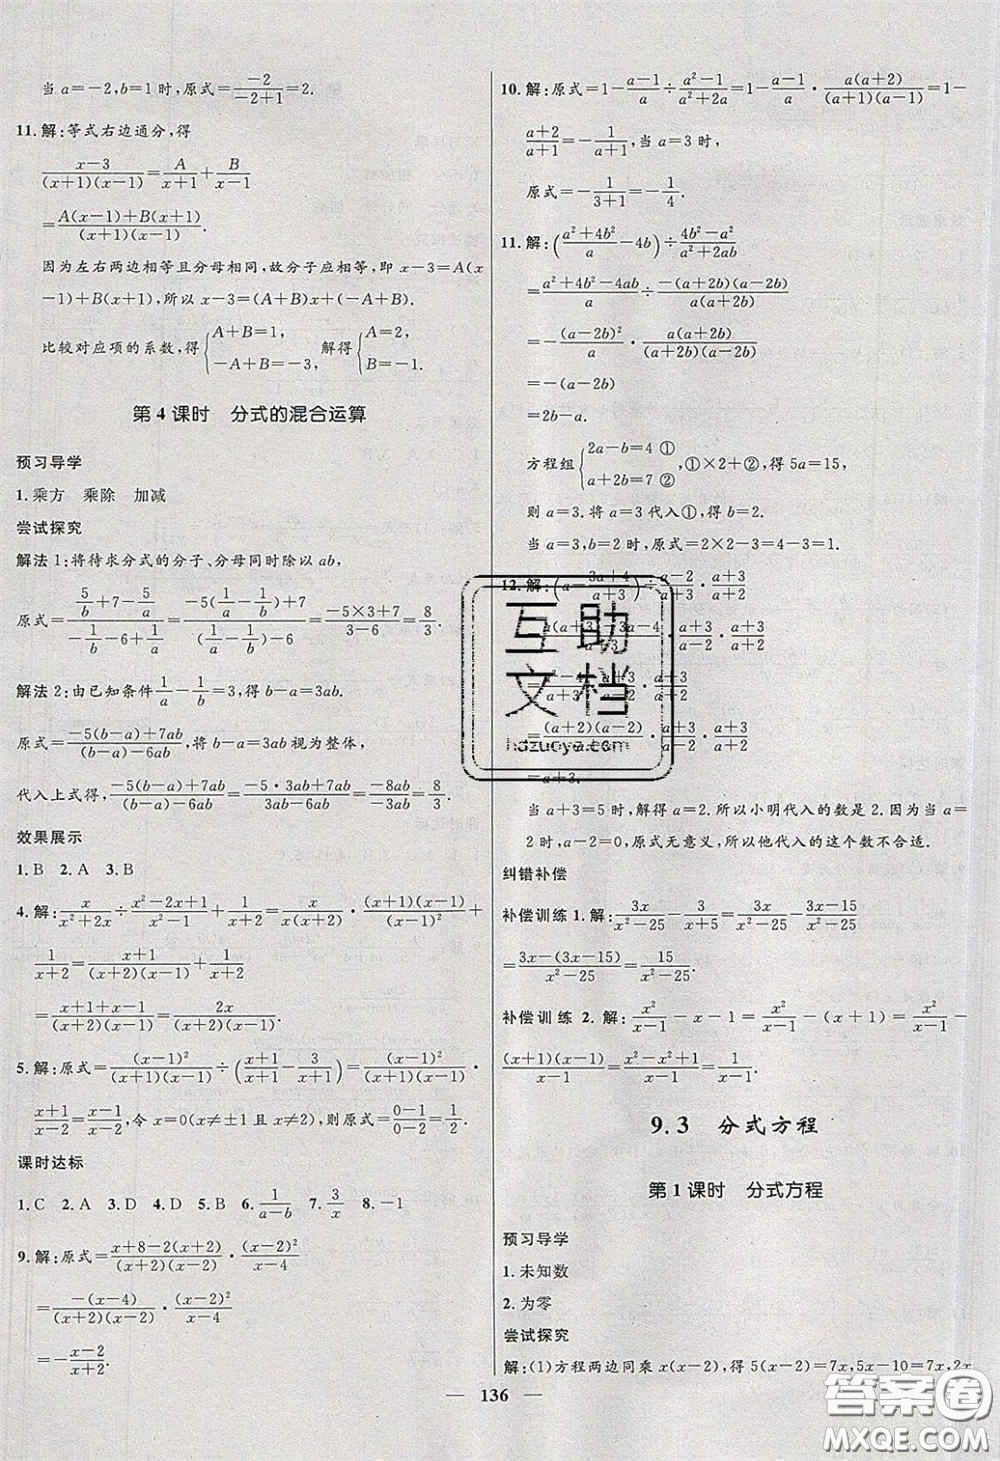 当 a=-2,b=1 时,原式=\frac{-2}{-2+1}=2.
11.解:等式右边通分,得
\frac{x-3}{(x+1)(x-1)}=\frac{A}{x+1}+\frac{B}{x-1}
=\frac{A(x-1)+B(x+1)}{(x+1)(x-1)}.
因为左右两边相等且分母相同,故分子应相等,即 x-3=A(x
-1)+B(x+1),所以 x-3=(A+B)x+(-A+B).
比较对应项的系数,得{A+B=1, -A+B=-3, 解得{A=2, B=-1.
第 4 课时 分式的混合运算
预习导学
1.乘方 乘除 加减
尝试探究
解法 1:将待求分式的分子、分母同时除以 ab,
原式=\frac{\frac{5}{b}+7-\frac{5}{a}}{-\frac{1}{a}-6+\frac{1}{b}}=\frac{-5(\frac{1}{a}-\frac{1}{b})+7}{(\frac{1}{a}-\frac{1}{b})-6}=\frac{-5×3+7}{3-6}=\frac{8}{3}.
解法 2:由已知条件\frac{1}{a}-\frac{1}{b}=3,得 b-a=3ab.
原式=\frac{-5(b-a)+7ab}{(b-a)-6ab},将 b-a=3ab 视为整体,
代入上式得,\frac{-5(b-a)+7ab}{(b-a)-6ab}=\frac{-5·3ab+7ab}{3ab-6ab}=\frac{-8ab}{-3ab}=\frac{8}{3}.
效果展示
1.B 2.A 3.B
4.解:\frac{x}{x²+2x}÷\frac{x²-2x+1}{x²-1}+\frac{1}{x+2}=\frac{x}{x(x+2)}·\frac{(x+1)(x-1)}{(x-1)²}+
\frac{1}{x+2}=\frac{x+1}{(x+2)(x-1)}+\frac{1}{x+2}
=\frac{x+1+x-1}{(x+2)(x-1)}=\frac{2x}{(x+2)(x-1)}.
5.解:原式=\frac{(x-1)²}{(x+1)(x-1)}÷(\frac{x+1}{x+1}-\frac{3}{x+1})=\frac{(x-1)²}{(x+1)(x-1)}·
\frac{x+1}{x-2}=\frac{x-1}{x-2},令 x=0(x≠±1 且 x≠2),则原式=\frac{0-1}{0-2}=\frac{1}{2}.
课时达标
1.C 2.A 3.D 4.D 5.B 6.\frac{1}{a-b} 7.\frac{3}{x} 8.-1
9.解:原式=\frac{x+8-2(x+2)}{(x+2)(x-2)}·\frac{(x-2)²}{x-4}
=\frac{-(x-4)}{(x+2)(x-2)}·\frac{(x-2)²}{x-4}
=-\frac{x-2}{x+2}.
10.解:原式=1-\frac{a-1}{a}÷\frac{a²-1}{a²+2a}=1-\frac{a-1}{a}·\frac{a(a+2)}{(a+1)(a-1)}=1-
\frac{a+2}{a+1}=-\frac{1}{a+1},当 a=3 时,
原式=-\frac{1}{3+1}=-\frac{1}{4}.
11.解:(\frac{a²+4b²}{a}-4b)÷\frac{4b²-a²}{a²+2ab}
=\frac{a²+4b²-4ab}{a}÷\frac{-(a+2b)(a-2b)}{a(a+2b)}
=-\frac{(a-2b)²}{a}·\frac{a(a+2b)}{(a+2b)(a-2b)}
=-(a-2b)
=2b-a.
方程组{2a-b=4 ① a+2b=7 ②,①×2+②,得 5a=15,
则 a=3.将 a=3 代入①,得 b=2.
当 a=3,b=2 时,原式=2×2-3=4-3=1.
12.解:(a-\frac{3a+4}{a+3})÷\frac{a-2}{a+3}·\frac{a+3}{a+2}
=\frac{a(a+3)-3a-4}{a+3}·\frac{a+3}{a-2}·\frac{a+3}{a+2}
·\frac{a+3}{a-2}·\frac{a+3}{a+2}
=\frac{(a+2)(a-2)}{a+3}·\frac{a+3}{a-2}·\frac{a+3}{a+2}
=a+3.
当 a+3=5 时,解得 a=2,所以小明代入的数是 2.因为当 a=
2 时,a-2=0,原式无意义,所以他代入的这个数不合适.
纠错补偿
补偿训练 1.解:\frac{3x}{x²-25}-\frac{3}{x+5}=\frac{3x}{x²-25}-\frac{3x-15}{x²-25}
=\frac{3x-(3x-15)}{x²-25}=\frac{15}{x²-25}.
补偿训练 2.解:\frac{x²}{x-1}-x-1=\frac{x²}{x-1}-(x+1)=\frac{x²}{x-1}-
\frac{(x+1)(x-1)}{x-1}=\frac{x²-x²+1}{x-1}=\frac{1}{x-1}.
9.3 分式方程
第 1 课时 分式方程
预习导学
1.未知数
2.为零
尝试探究
解:(1)方程两边同乘 x(x-2),得 5(x-2)=7x,5x-10=7x,2x
136
互助文档
hdzuoye.com
答案圈
MXQE.COM